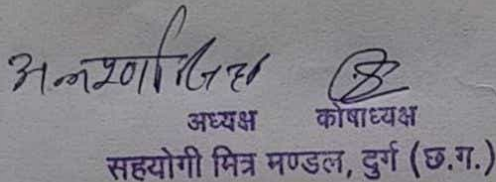 अध्यक्ष कोषाध्यक्ष
सहयोगी मित्र मण्डल, दुर्ग (छ.ग.)